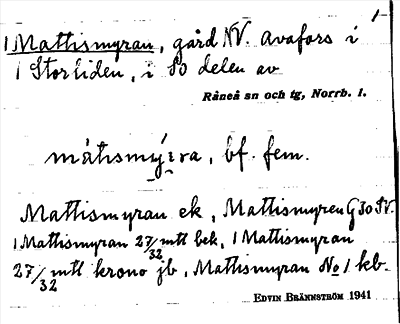 1 Mattismyran, gård NV. Avafors i
1 Storliden, i SO delen av
Råneå sn och tg, Norrb. l.
måtismýrra, bf. fem.
Mattismyran ek, Mattismyren G30SV.
1 Mattismyran 27/32 mtl bek, 1 Mattismyran
27/32 mtl krono jb, Mattismyran No 1 kb.
EDVIN BRÄNNSTRÖM 1941